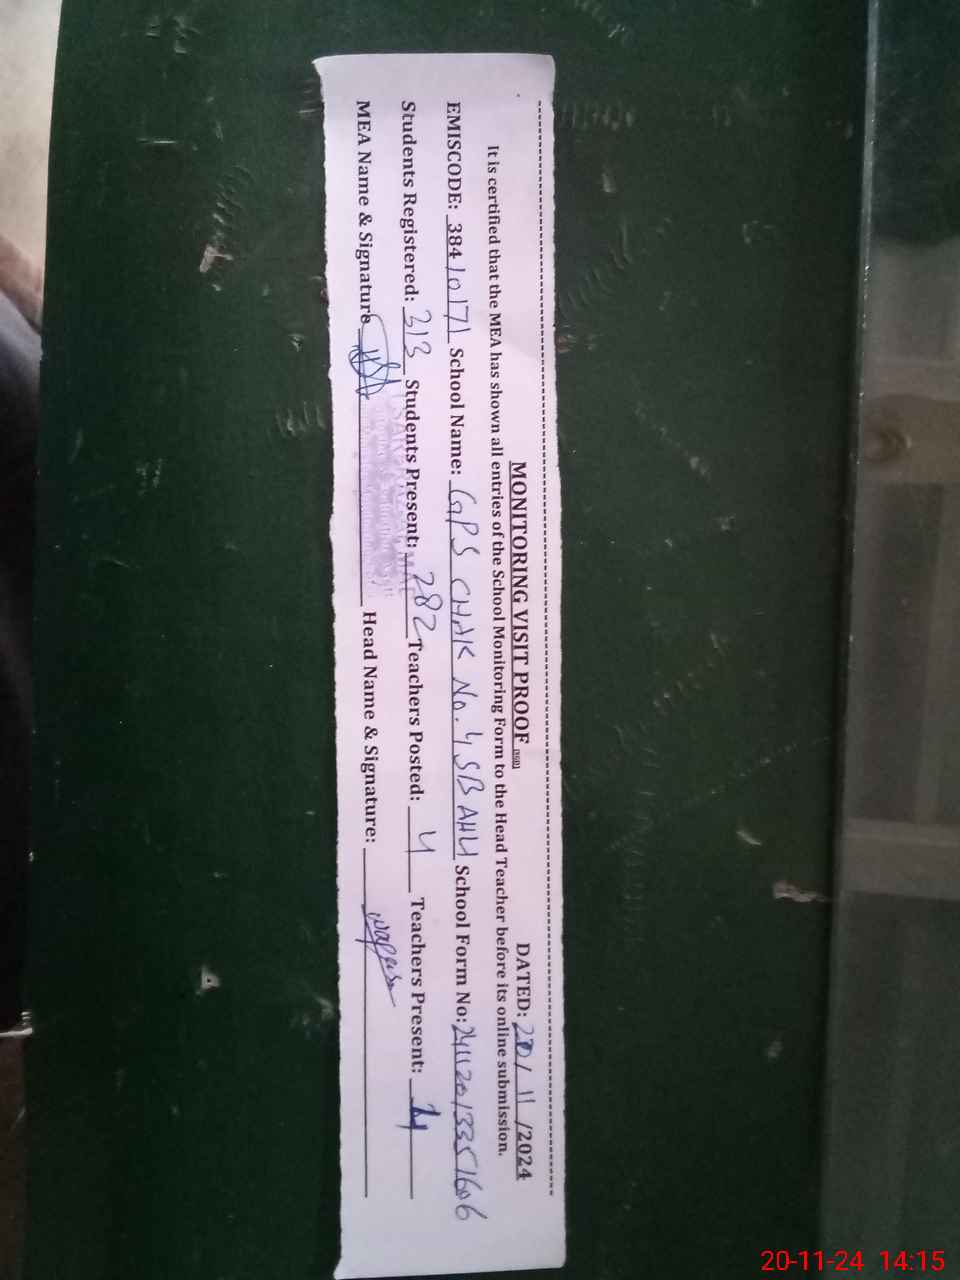 MONITORING VISIT PROOF DATED: 20/11/2024
It is certified that the MEA has shown all entries of the School Monitoring Form to the Head Teacher before its online submission.
EMISCODE: 38410171 School Name: GPS CHAK No. 4 SB AHU School Form No: 24112013351606
Students Registered: 313 Students Present: 282 Teachers Posted: 4 Teachers Present: 4
MEA Name & Signature Head Name & Signature:
20-11-24 14:15